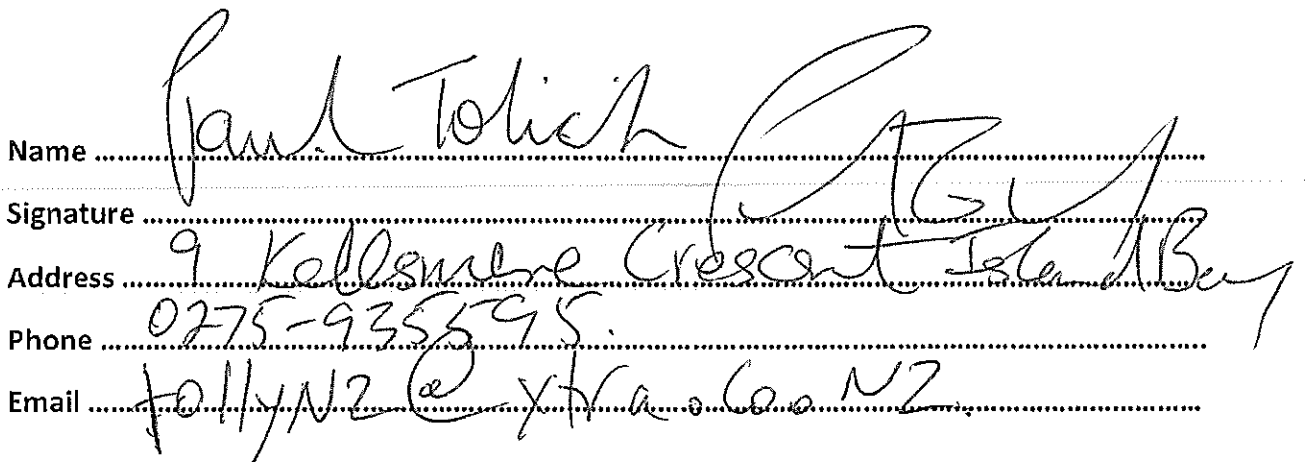 Name Paul Tolich
Signature
Address 9 Kellsmere Crescent Island Bay
Phone 0275-935595.
Email tollyNZ@xtra.co.NZ.